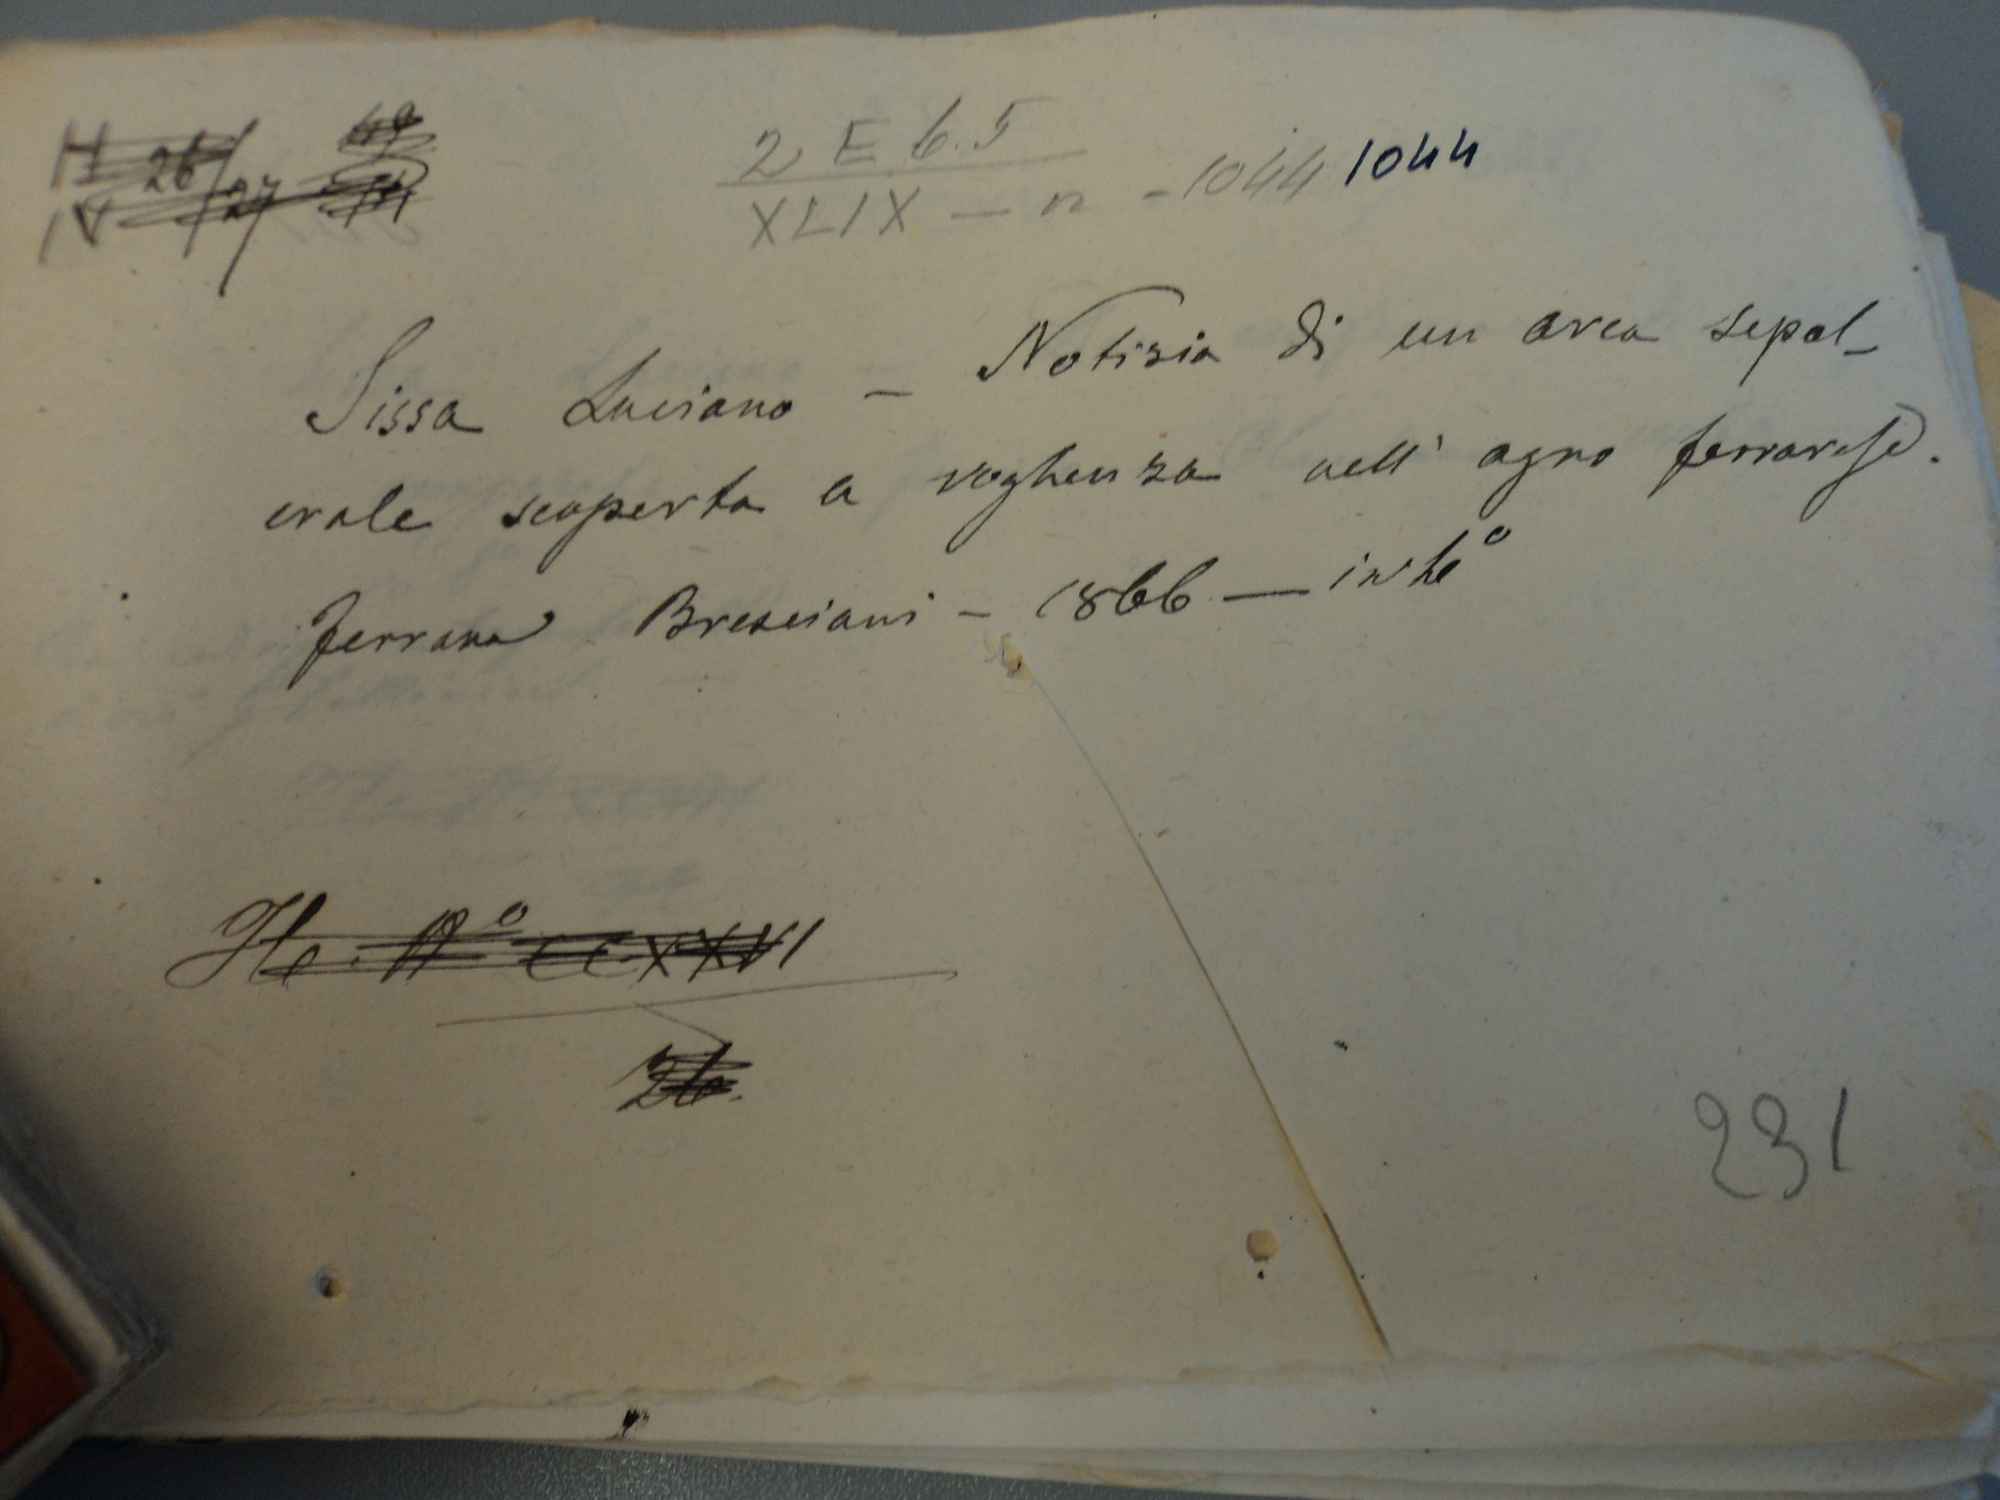 H 26/27
IV
2 E 6.5
XLIX - n - 1044 1044
Sissa Luciano - Notizia di un arca sepol-
crale scoperta a voghenza nell' agro ferrarese.
ferrara Bresciani - 1866 - in 4º
Hc. Nº CCXXVI
26.
231